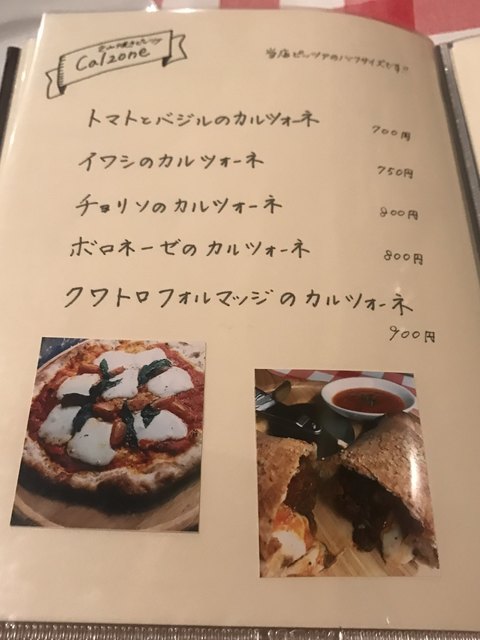 包み焼きピッツァ
Calzone
当店ピッツァのハーフサイズです!!
トマトとバジルのカルツォーネ
700円
イワシのカルツォーネ
750円
チョリソのカルツォーネ
800円
ボロネーゼのカルツォーネ
800円
クワトロフォルマッジのカルツォーネ
900円